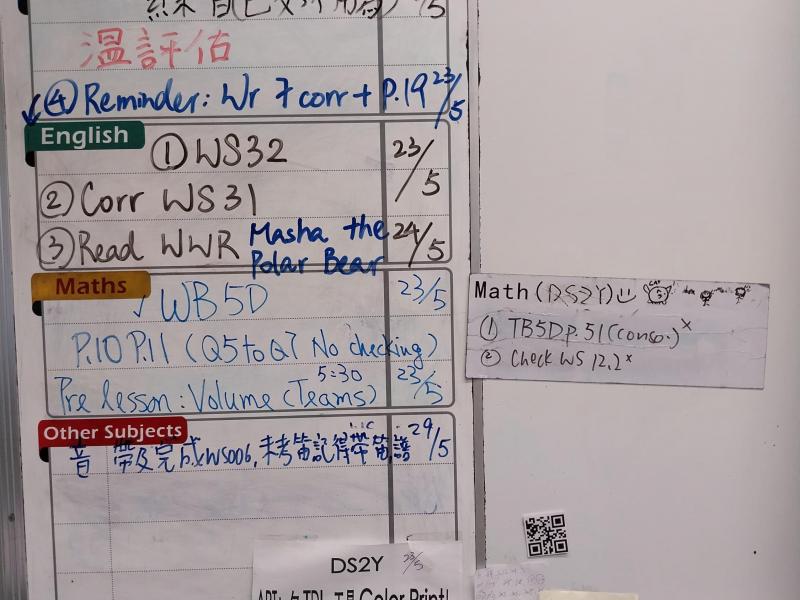 溫評估
④ Reminder: Wr 7 corr + P.19 23/5
English
① WS32 23/5
② Corr WS31
③ Read WWR Masha the Polar Bear 24/5
Maths
WB5D 23/5
P.10 P.11 (Q5 to Q7 No checking)
Pre lesson: Volume (Teams) 5:30 23/5
Math (DS2Y)
① TB5D p.51 (conso.) x
② Check WS 12.2 x
Other Subjects
音 帶及完成WS006, 未考笛記得帶笛譜 29/5
DS2Y 23/5
Color Print!